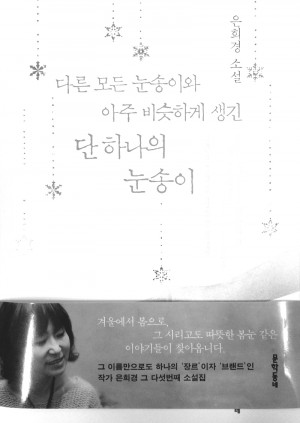 은희경 소설
다른 모든 눈송이와
아주 비슷하게 생긴
단 하나의
눈송이
겨울에서 봄으로,
그 시리고도 따뜻한 봄눈 같은
이야기들이 찾아옵니다.
그 이름만으로도 하나의 '장르'이자 '브랜드'인
작가 은희경 그 다섯번째 소설집
문학동네